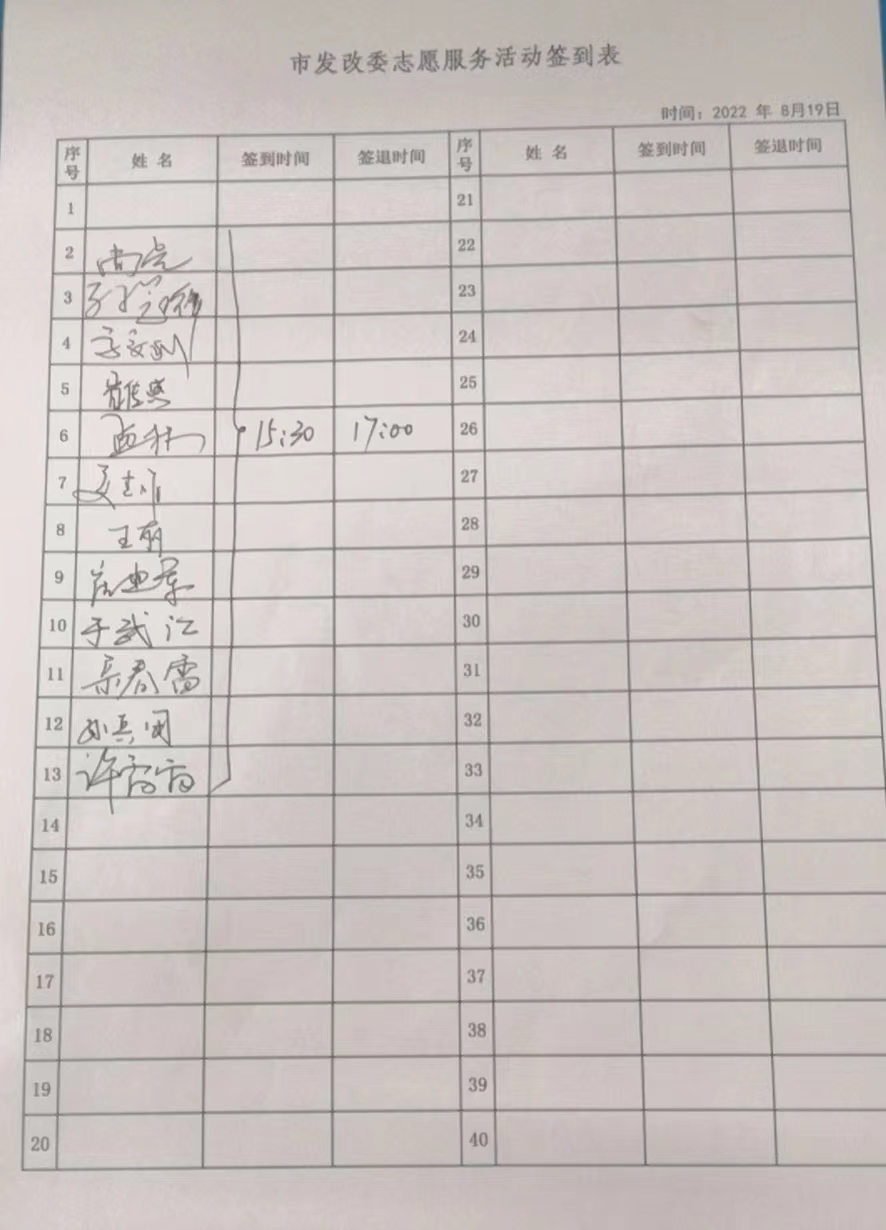 市发改委志愿服务活动签到表
时间：2022 年 8月19日
序号 姓 名 签到时间 签退时间 序号 姓 名 签到时间 签退时间
1 21
2 尚亮 22
3 23
4 24
5 25
6 15:30 17:00 26
7 27
8 王萌 28
9 29
10 于武江 30
11 春雷 31
12 孙兵团 32
13 许雷雷 33
14 34
15 35
16 36
17 37
18 38
19 39
20 40